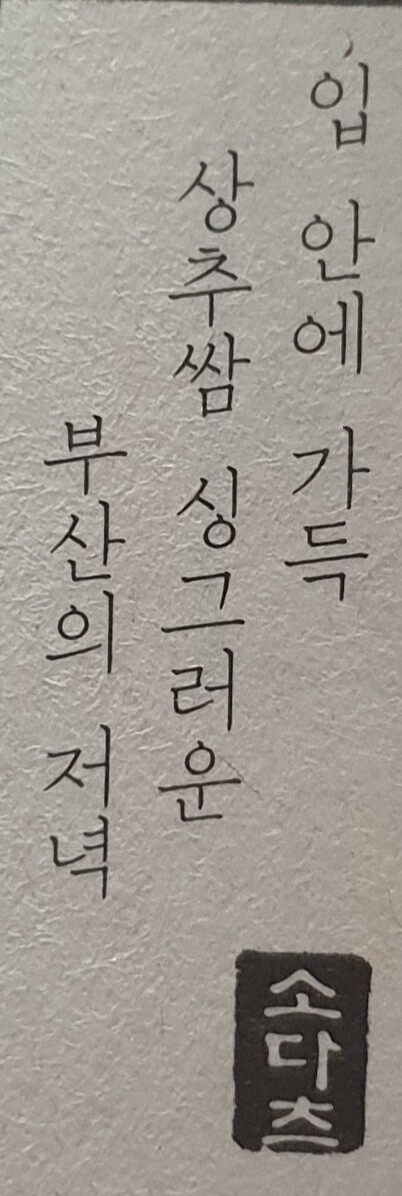 입 안에 가득
상추쌈 싱그러운
부산의 저녁
소다츠